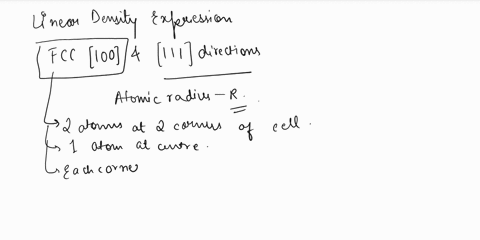 Linear Density Expression
FCC [100] & [111] directions
Atomic radius - R.
2 atoms at 2 corners of cell.
1 atom at centre.
Each corne